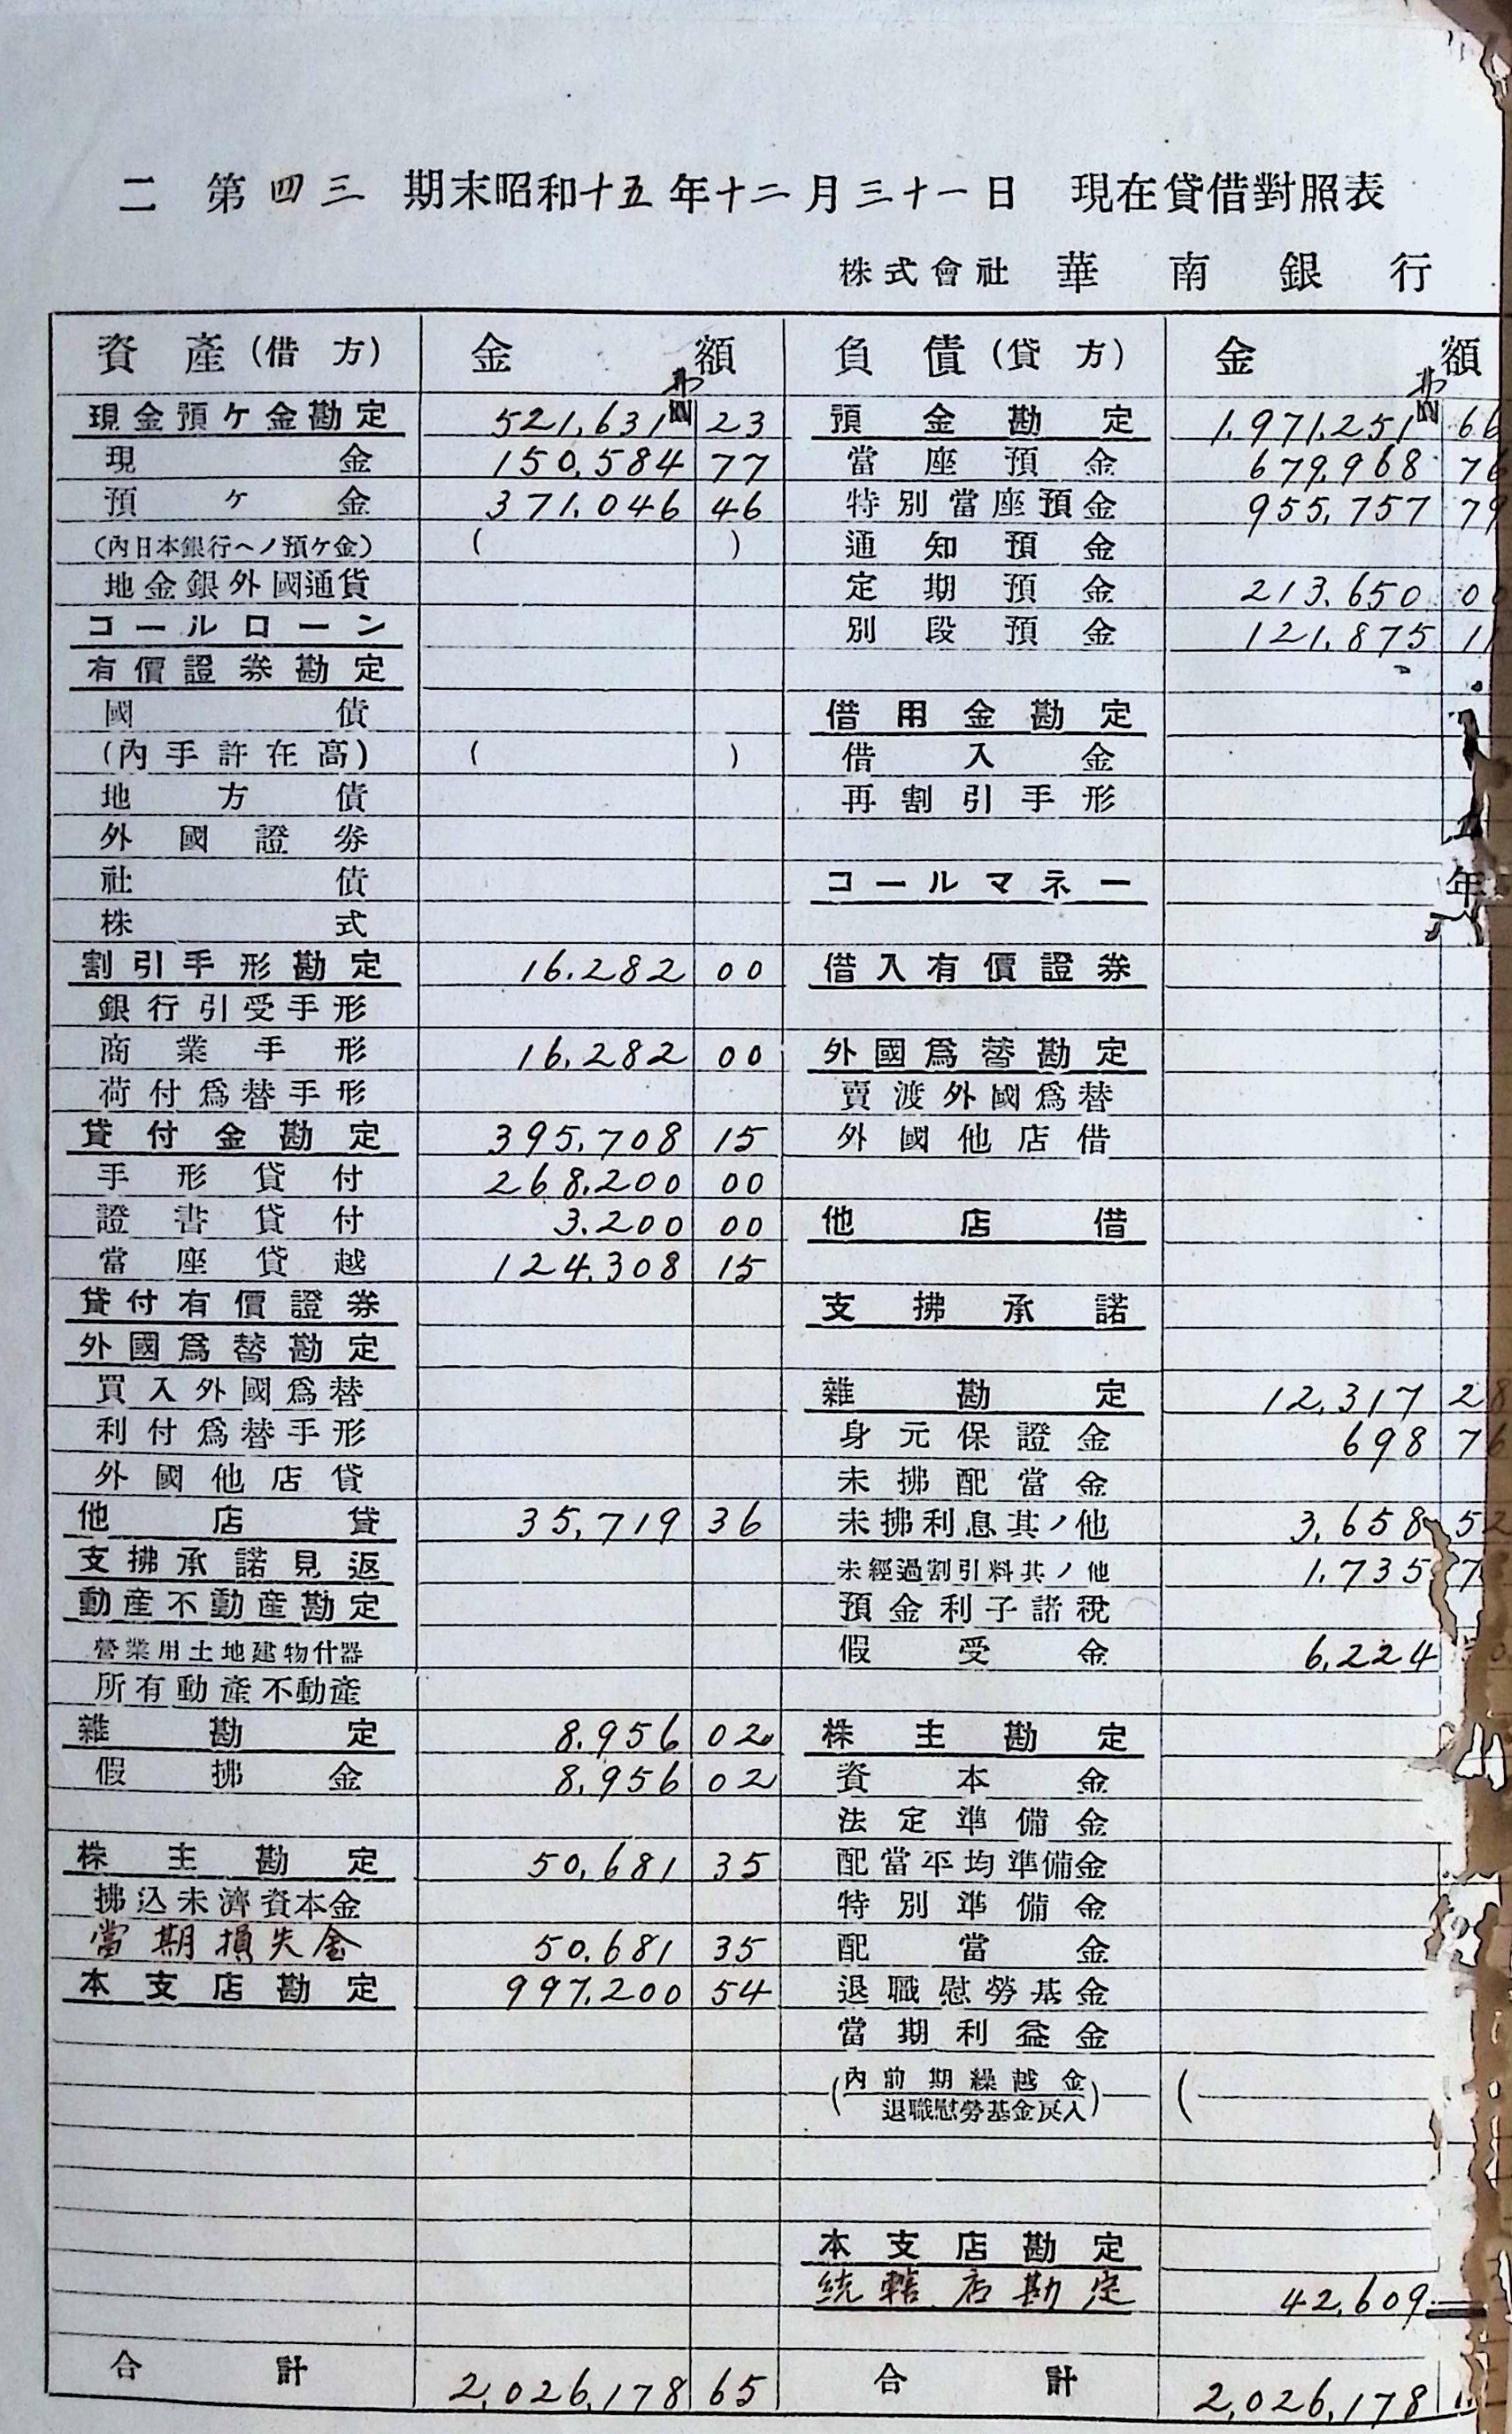 二 第四三 期末昭和十五年十二月三十一日 現在貸借對照表
株式會社 華南銀行
資產(借方) 金額 負債(貸方) 金額
現金預ケ金勘定 521,631 23 預金勘定 1,971,251 66
現金 150,584 77 當座預金 679,968 76
預ケ金 371,046 46 特別當座預金 955,757 79
(內日本銀行ヘノ預ケ金) ( ) 通知預金
地金銀外國通貨 定期預金 213,650 00
コールローン 別段預金 121,875 11
有價證券勘定
國債 借用金勘定
(內手許在高) ( ) 借入金
地方債 再割引手形
外國證券
社債 コールマネー
株式
割引手形勘定 16,282 00 借入有價證券
銀行引受手形
商業手形 16,282 00 外國爲替勘定
荷付爲替手形 賣渡外國爲替
貸付金勘定 395,708 15 外國他店借
手形貸付 268,200 00
證書貸付 3,200 00 他店借
當座貸越 124,308 15
貸付有價證券 支拂承諾
外國爲替勘定
買入外國爲替 雜勘定 12,317 28
利付爲替手形 身元保證金 698 76
外國他店貸 未拂配當金
他店貸 35,719 36 未拂利息其ノ他 3,658 52
支拂承諾見返 未經過割引料其ノ他 1,735
動產不動產勘定 預金利子諸稅
營業用土地建物什器 假受金 6,224
所有動產不動產
雜勘定 8,956 02 株主勘定
假拂金 8,956 02 資本金
法定準備金
株主勘定 50,681 35 配當平均準備金
拂込未濟資本金 特別準備金
當期損失金 50,681 35 配當金
本支店勘定 997,200 54 退職慰勞基金
當期利益金
(內前期繰越金 (
退職慰勞基金戾入)
本支店勘定
統轄店勘定 42,609
合計 2,026,178 65 合計 2,026,178